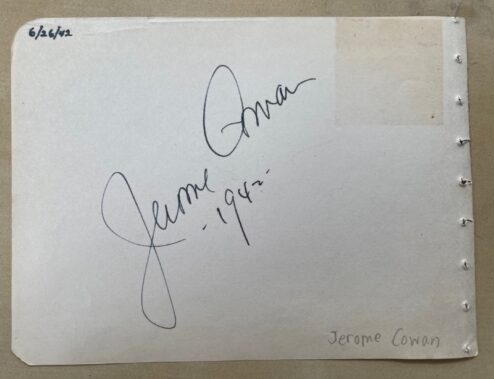 6/26/42
Jerome Cowan
- 1942 -
Jerome Cowan